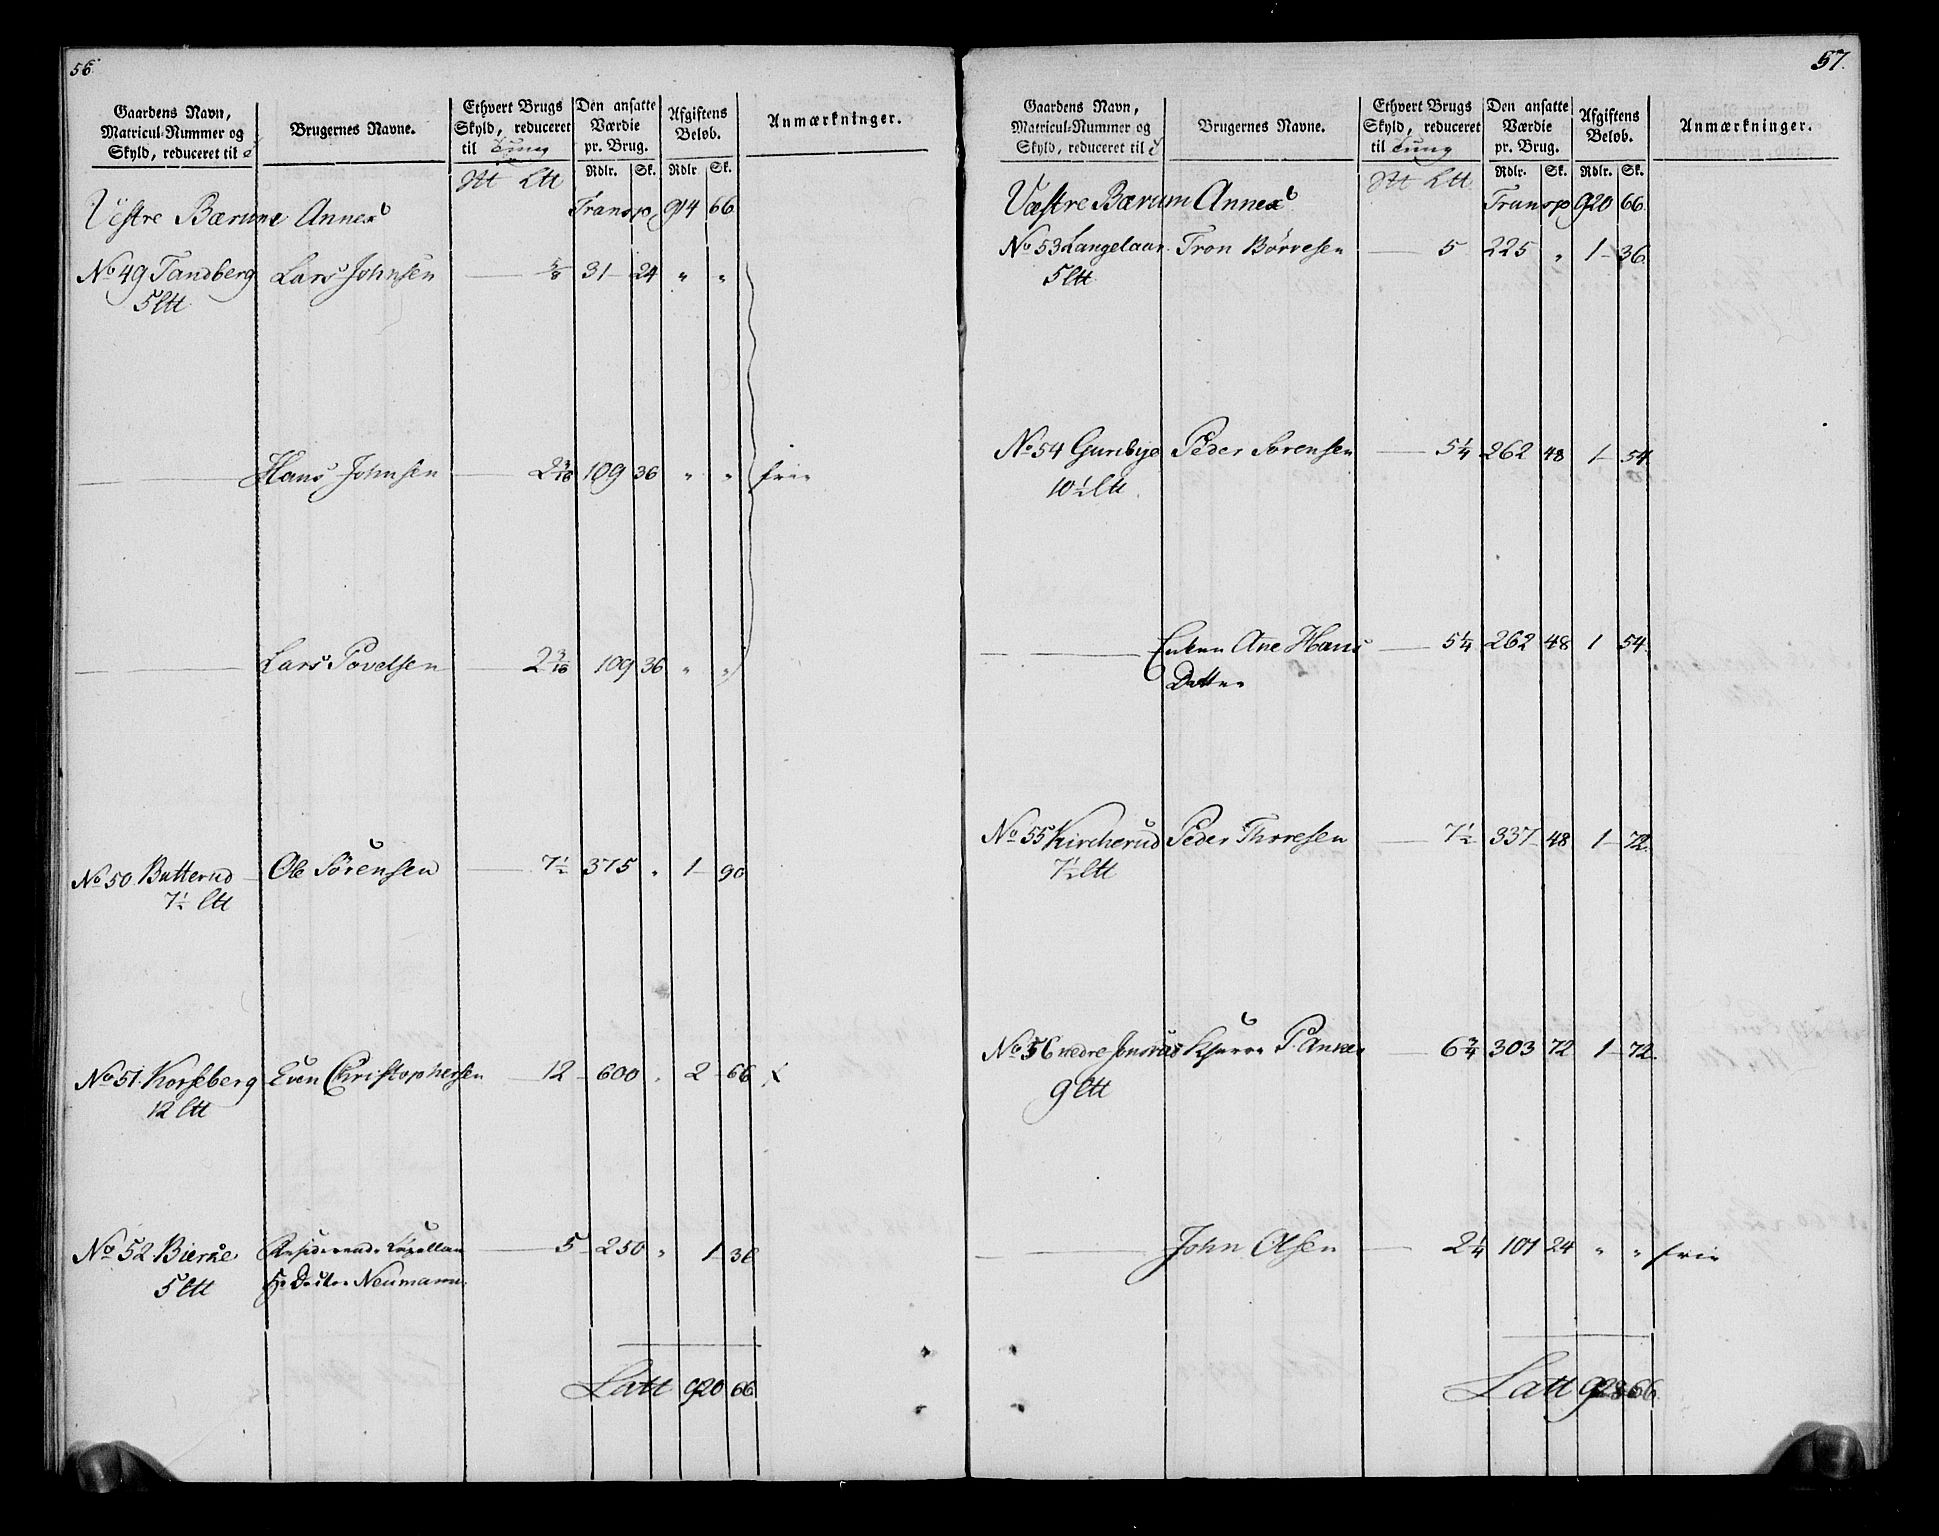 56.
Gaardens Navn, Matricul-Nummer og Skyld, reduceret til
Brugernes Navne.
Ethvert Brugs Skyld, reduceret til Tung
Den ansatte Værdie pr. Brug.
Afgiftens Beløb.
Anmærkninger.
Rdlr. Sk. Rdlr Sk.
Vestre Bærums Annex Transp 914 66
No 49 Tandberg Lars Johnsen 5/8 31 24 " "
5 Ltt
Hans Johnsen 2 3/16 109 36 " " frie
Lars Povelsen 2 3/16 109 36 " "
No 50 Butterud Ole Sørensen 7½ 375 " 1 90
7½ Ltt
No 51 Korseberg Even Christophersen 12 600 " 2 66
12 Ltt
No 52 Bierke Residerende Capellan 5 250 " 1 36
5 Ltt Hr Doctor Neumann
Latt 920 66
57.
Gaardens Navn, Matricul-Nummer og Skyld, reduceret til
Brugernes Navne.
Ethvert Brugs Skyld, reduceret til Tung
Den ansatte Værdie pr. Brug.
Afgiftens Beløb.
Anmærkninger.
Rdlr. Sk. Rdlr. Sk.
Vestre Bærum Annex Transp 920 66
No 53 Langelaar Tron Börresen 5 225 " 1 36
5 Ltt
No 54 Gursbye Peder Sorensen 5¼ 262 48 1 54
10½ Ltt
Enken Ane Hans 5¼ 262 48 1 54
Datter
No 55 Kircherud Peder Thoresen 7½ 337 48 1 72
7½ Ltt
No 56 nedre P. Anker 6¾ 303 72 1 72
9 Ltt
John Olsen 2¼ 101 24 " " frie
Latt 928 66